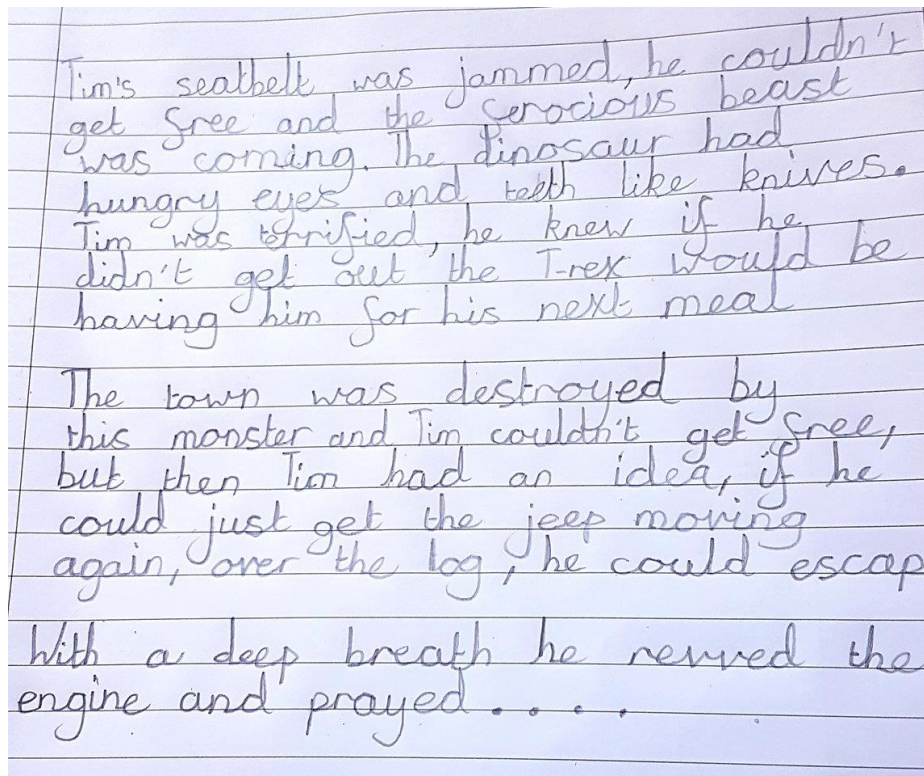 Tim's seatbelt was jammed, he couldn't
get free and the ferocious beast
was coming. The dinosaur had
hungry eyes and teeth like knives.
Tim was terrified, he knew if he
didn't get out the T-rex would be
having him for his next meal
The town was destroyed by
this monster and Tim couldn't get free,
but then Tim had an idea, if he
could just get the jeep moving
again, over the log, he could escap
With a deep breath he revved the
engine and prayed....